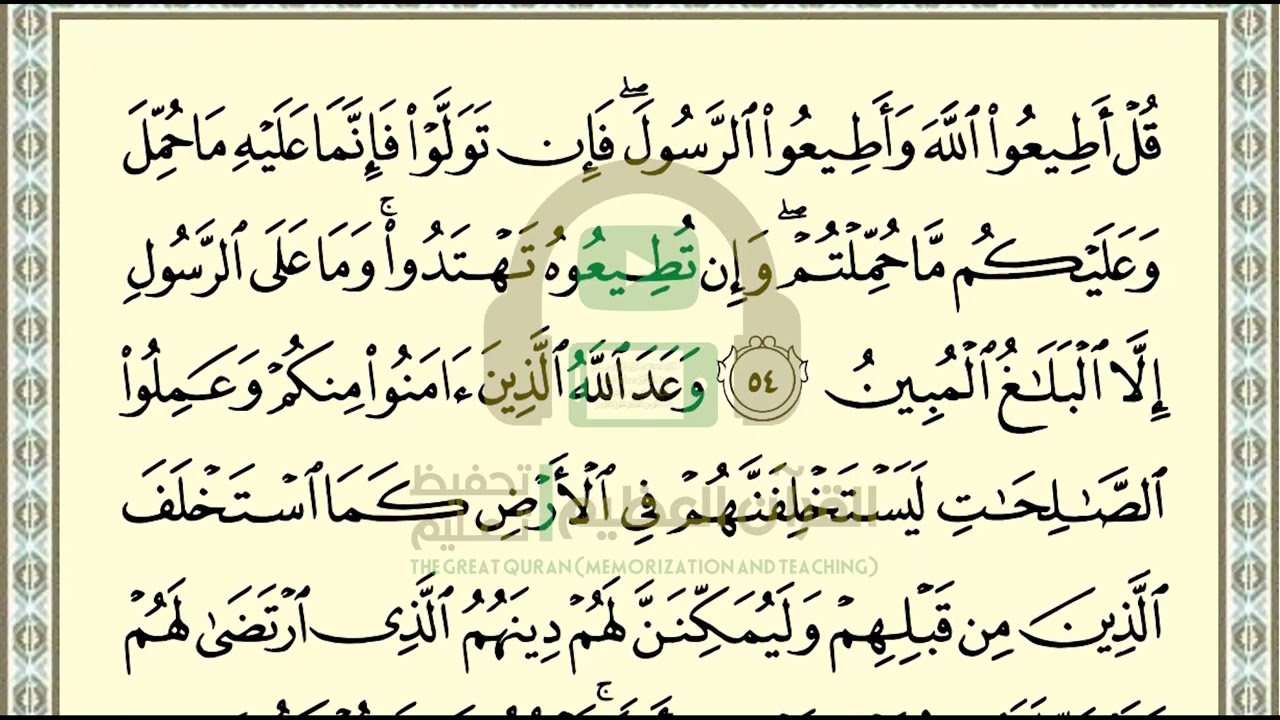 قُلْ أَطِيعُوا۟ ٱللَّهَ وَأَطِيعُوا۟ ٱلرَّسُولَ ۖ فَإِن تَوَلَّوْا۟ فَإِنَّمَا عَلَيْهِ مَا حُمِّلَ
وَعَلَيْكُم مَّا حُمِّلْتُمْ ۖ وَإِن تُطِيعُوهُ تَهْتَدُوا۟ ۚ وَمَا عَلَى ٱلرَّسُولِ
إِلَّا ٱلْبَلَـٰغُ ٱلْمُبِينُ ٥٤ وَعَدَ ٱللَّهُ ٱلَّذِينَ ءَامَنُوا۟ مِنكُمْ وَعَمِلُوا۟
ٱلصَّـٰلِحَـٰتِ لَيَسْتَخْلِفَنَّهُمْ فِى ٱلْأَرْضِ كَمَا ٱسْتَخْلَفَ
القرآن العظيم تحفيظ تعليم
THE GREAT QURAN (MEMORIZATION AND TEACHING)
ٱلَّذِينَ مِن قَبْلِهِمْ وَلَيُمَكِّنَنَّ لَهُمْ دِينَهُمُ ٱلَّذِى ٱرْتَضَىٰ لَهُمْ